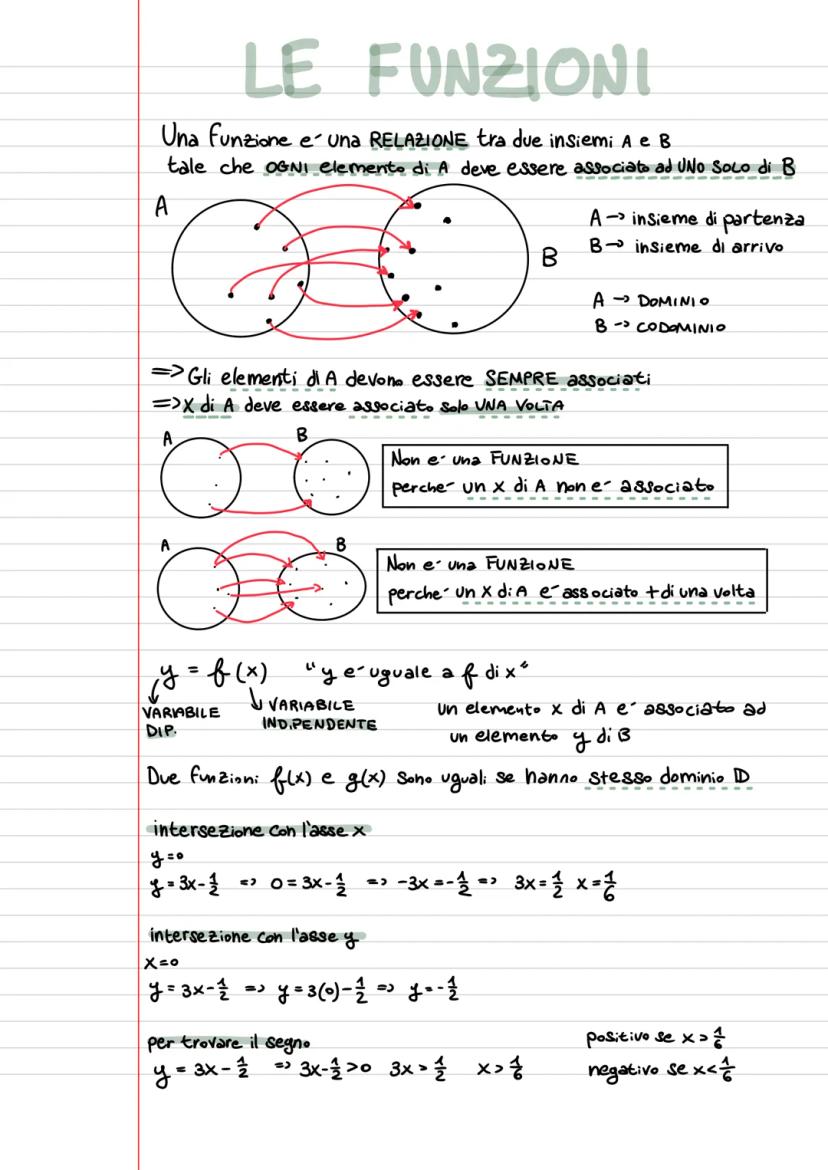 LE FUNZIONI
Una funzione e' una RELAZIONE tra due insiemi A e B
tale che OGNI elemento di A deve essere associato ad UNO SOLO di B
A
B
A → insieme di partenza
B → insieme di arrivo
A → DOMINIO
B → CODOMINIO
=> Gli elementi di A devono essere SEMPRE associati
=> X di A deve essere associato solo UNA VOLTA
A B
Non e' una FUNZIONE
perche' un x di A non e' associato
A B
Non e' una FUNZIONE
perche' un X di A e' associato + di una volta
y = f(x) "y e' uguale a f di x"
VARIABILE DIP.
VARIABILE INDIPENDENTE
un elemento x di A e' associato ad
un elemento y di B
Due funzioni f(x) e g(x) sono uguali se hanno stesso dominio D
intersezione con l'asse x
y=0
y = 3x - 1/2 => 0 = 3x - 1/2 => -3x = -1/2 => 3x = 1/2 x = 1/6
intersezione con l'asse y
x=0
y = 3x - 1/2 => y = 3(0) - 1/2 => y = -1/2
per trovare il segno
y = 3x - 1/2 => 3x - 1/2 > 0 3x > 1/2 x > 1/6
positivo se x > 1/6
negativo se x < 1/6